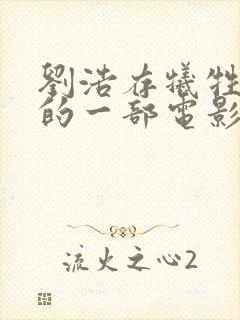 劉浩存犧牲
的一部電影
流火之心2